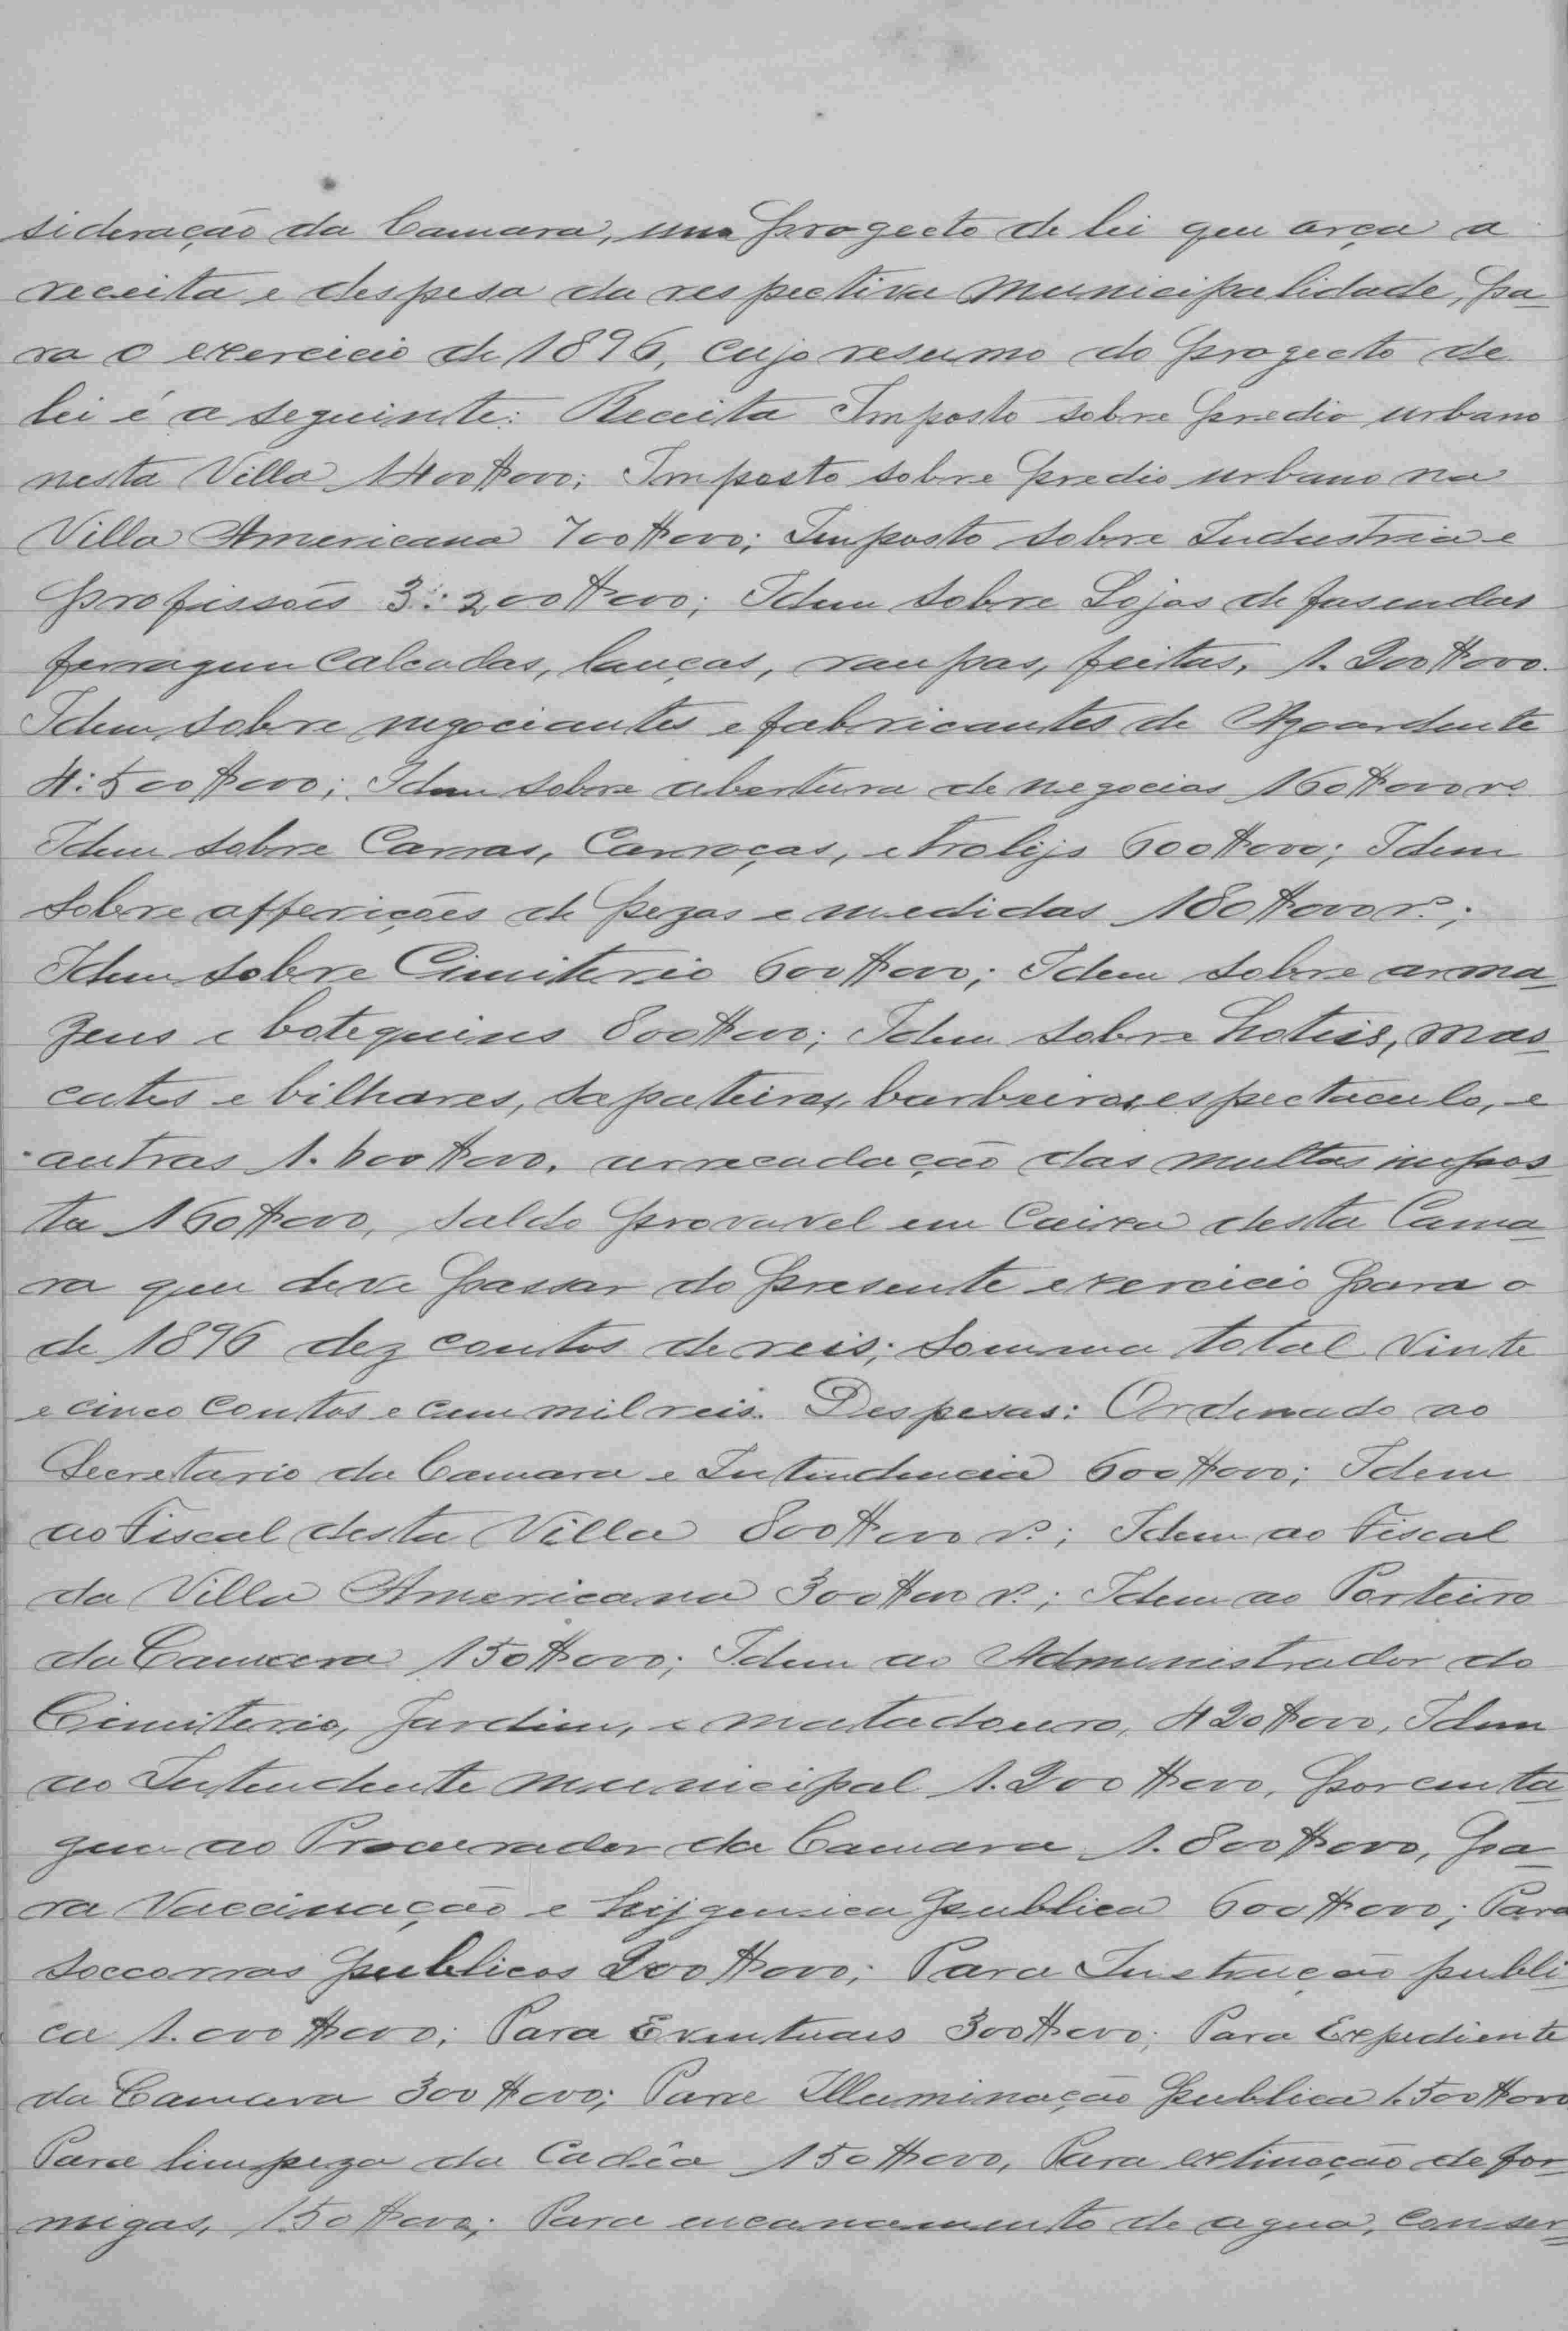 sideração da Camara, um progecto de lei que orça a
receita e despesa da respectiva Municipalidade, pa-
ra o exercicio de 1896, cujo resumo do progecto de
lei é a seguinte: Receita Imposto sobre predio urbano
nesta Villa 1400$000; Imposto sobre predio urbano na
Villa Americana 700$000; Imposto sobre Industria e
profissoês 3:200$000; Idem sobre Lojas de fasendas
ferragem calcados, louças, roupas, feitas, 1.200$000.
Idem sobre negociantes e fabricantes de Agoardente
4:500$000; Idem sobre abertura de negocios 160$000 rs
Idem sobre Carros, Carroças, e trolys 600$000; Idem
sobre afferições de pezos e medidas 180$000 rs;
Idem sobre Cimiterio 600$000; Idem sobre arma-
zens e botequins 800$000; Idem sobre hoteis, mas-
cates e bilhares, sapateiros, barbeiros, espectaculo, e
outros 1.600$000, arrecadação das multas impos-
ta 160$000, saldo provavel em Caixa desta Cama-
ra que deve passar do presente exercicio para o
de 1896 dez contos de reis; somma total vinte
e cinco contos e cem mil reis. Despesas: Ordenado ao
Secretario da Camara e Intendencia 600$000; Idem
ao Fiscal desta Villa 800$000 rs; Idem ao Fiscal
da Villa Americana 300$000 rs; Idem ao Porteiro
da Camara 150$000; Idem ao Administrador do
Cimiterio, Jardim, e matadouro, 420$000, Idem
ao Intendente municipal 1.200$000, porcenta-
gem ao Procurador da Camara 1.800$000, Pa-
ra Vaccinação e hijgenica publica 600$000; Para
soccorros publicos 200$000; Para Instrucção publi-
ca 1.000$000; Para Eventuais 300$000; Para Expediente
da Camara 300$000; Para Illuminação publica 1.500$000
Para limpeza da Cadêa 150$000, Para extinção de for-
migas, 150$000; Para encanamento de agua, conser-